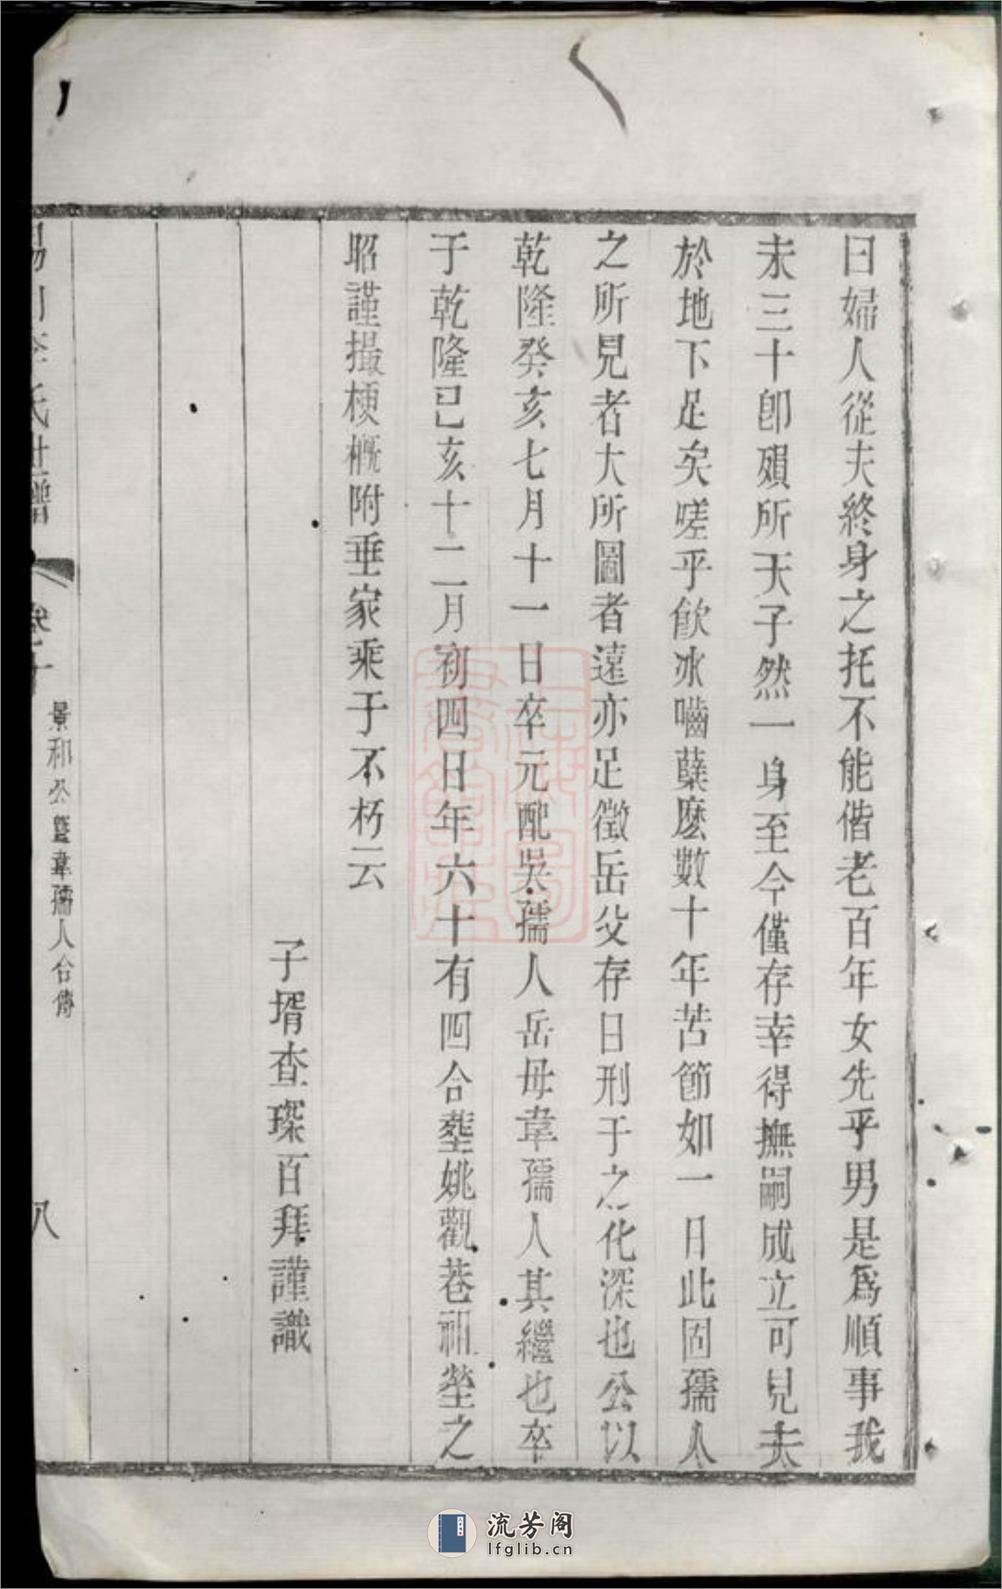 曰婦人從夫終身之托不能偕老百年女先乎男是爲順事我
未三十卽殞所天孑然一身至今僅存幸得撫嗣成立可見夫
於地下足矣嗟乎飮冰嚙蘖麽數十年苦節如一日此固孺人
之所見者大所圖者遠亦足徵岳父存日刑于之化深也公以
乾隆癸亥七月十一日卒元配吳孺人岳母韋孺人其繼也卒
于乾隆己亥十二月初四日年六十有四合塟姚觀巷祖塋之
昭謹撮梗槪附垂家乘于不朽云
子壻查琛百拜謹識
氏世譜
卷十
景和公暨韋孺人合傳
八
流芳阁
lfglib.cn